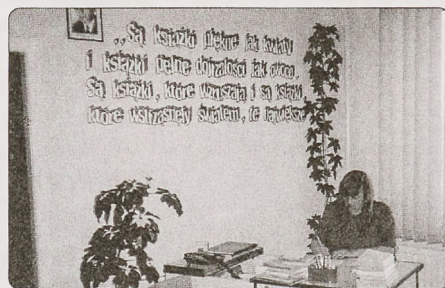 „Są książki piękne jak kwiaty
i książki pełne dojrzałości jak owoce.
Są książki, które wzruszają i są książki,
które wstrząsnęły światem, te największe